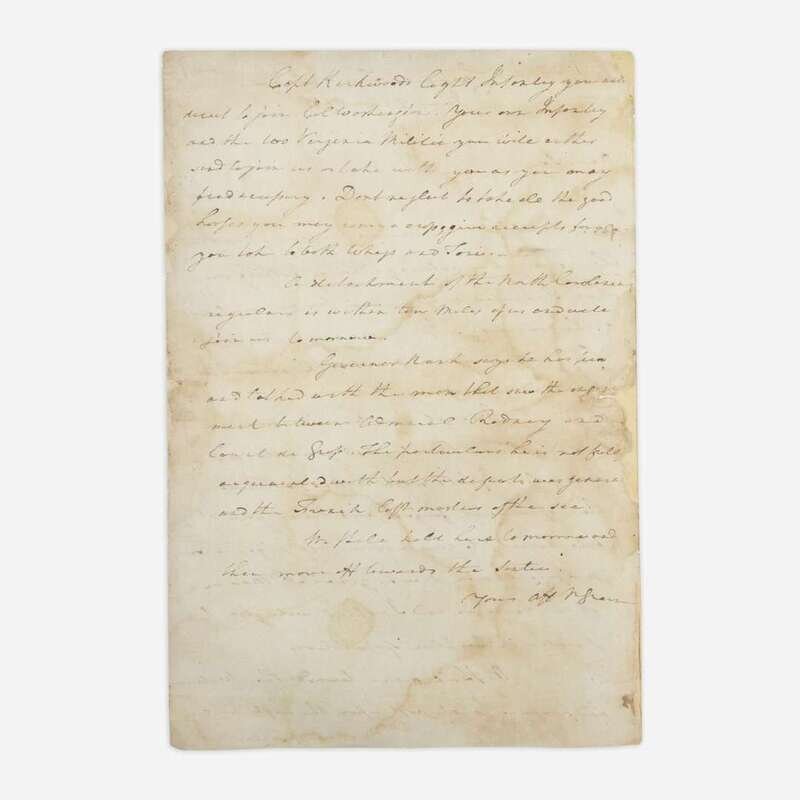 Capt Kirkwoods Light Infantry you are
direct to join Col Washington. Your own Infantry
and the 200 Virginia Militia you will either
send to join us or take with you as you may
find necessary. Dont neglect to take all the good
horses you may giving receipts for all
you take to both Whigs and Tories.
A detachment of the North Carolina
regulars is within ten miles of us and will
join us to morrow.
Governor Nash says he has seen
and talked with the man that saw the engage
ment between Admiral Rodney and
Count de Grass. The particulars he is not fully
acquainted with but the defeat was general
and the French left masters of the sea.
We shall halt here to morrow and
then move off towards the Santee.
Yours Aff NGreene